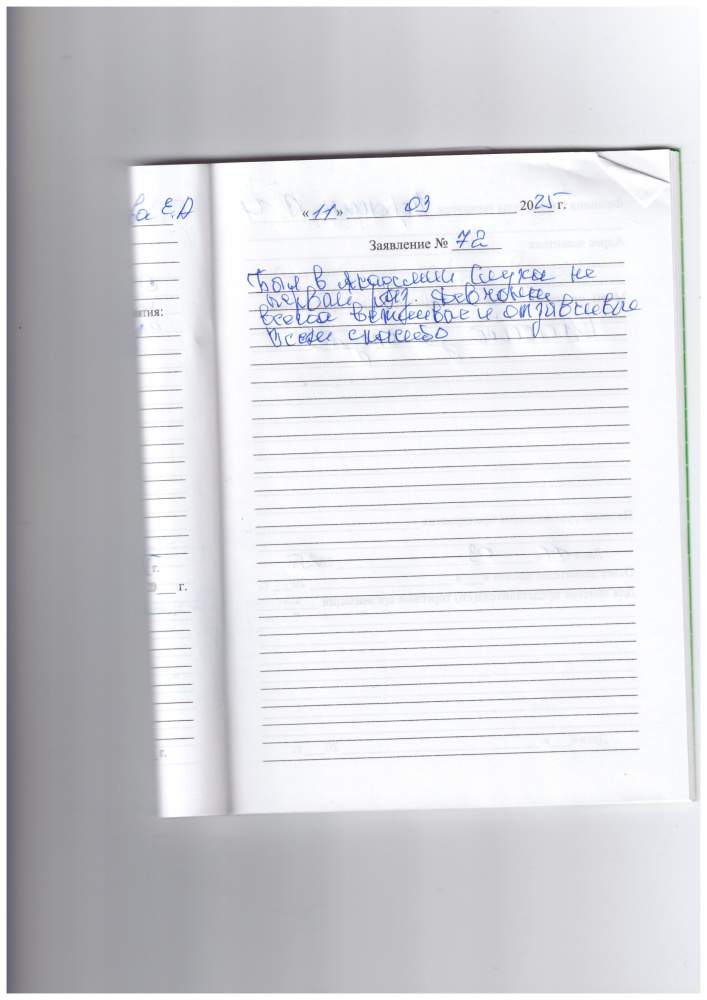 ва Е.А
« 11 » 03 2025 г.
Заявление № 72
Был в Академии Слуха не
первый раз. Девчонки
всегда вежливые и отзывчивые
Всем спасибо
ятия:
г.
г.
г.